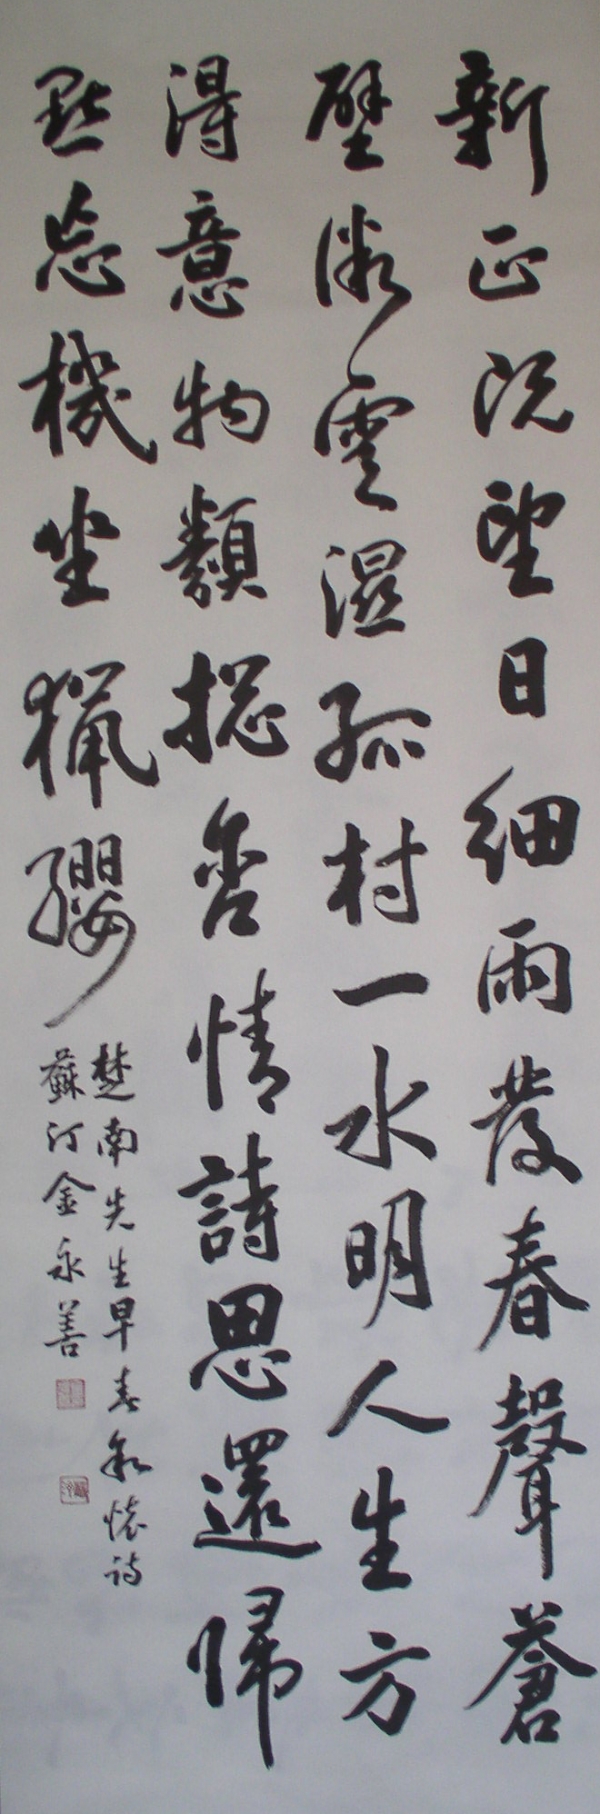 新正既望日細雨發春聲蒼
壁微雲濕孤村一水明人生方
得意物類摠含情詩思還歸
點忘機坐獵纓
楚南先生早春永懷詩
蘇汀金永善